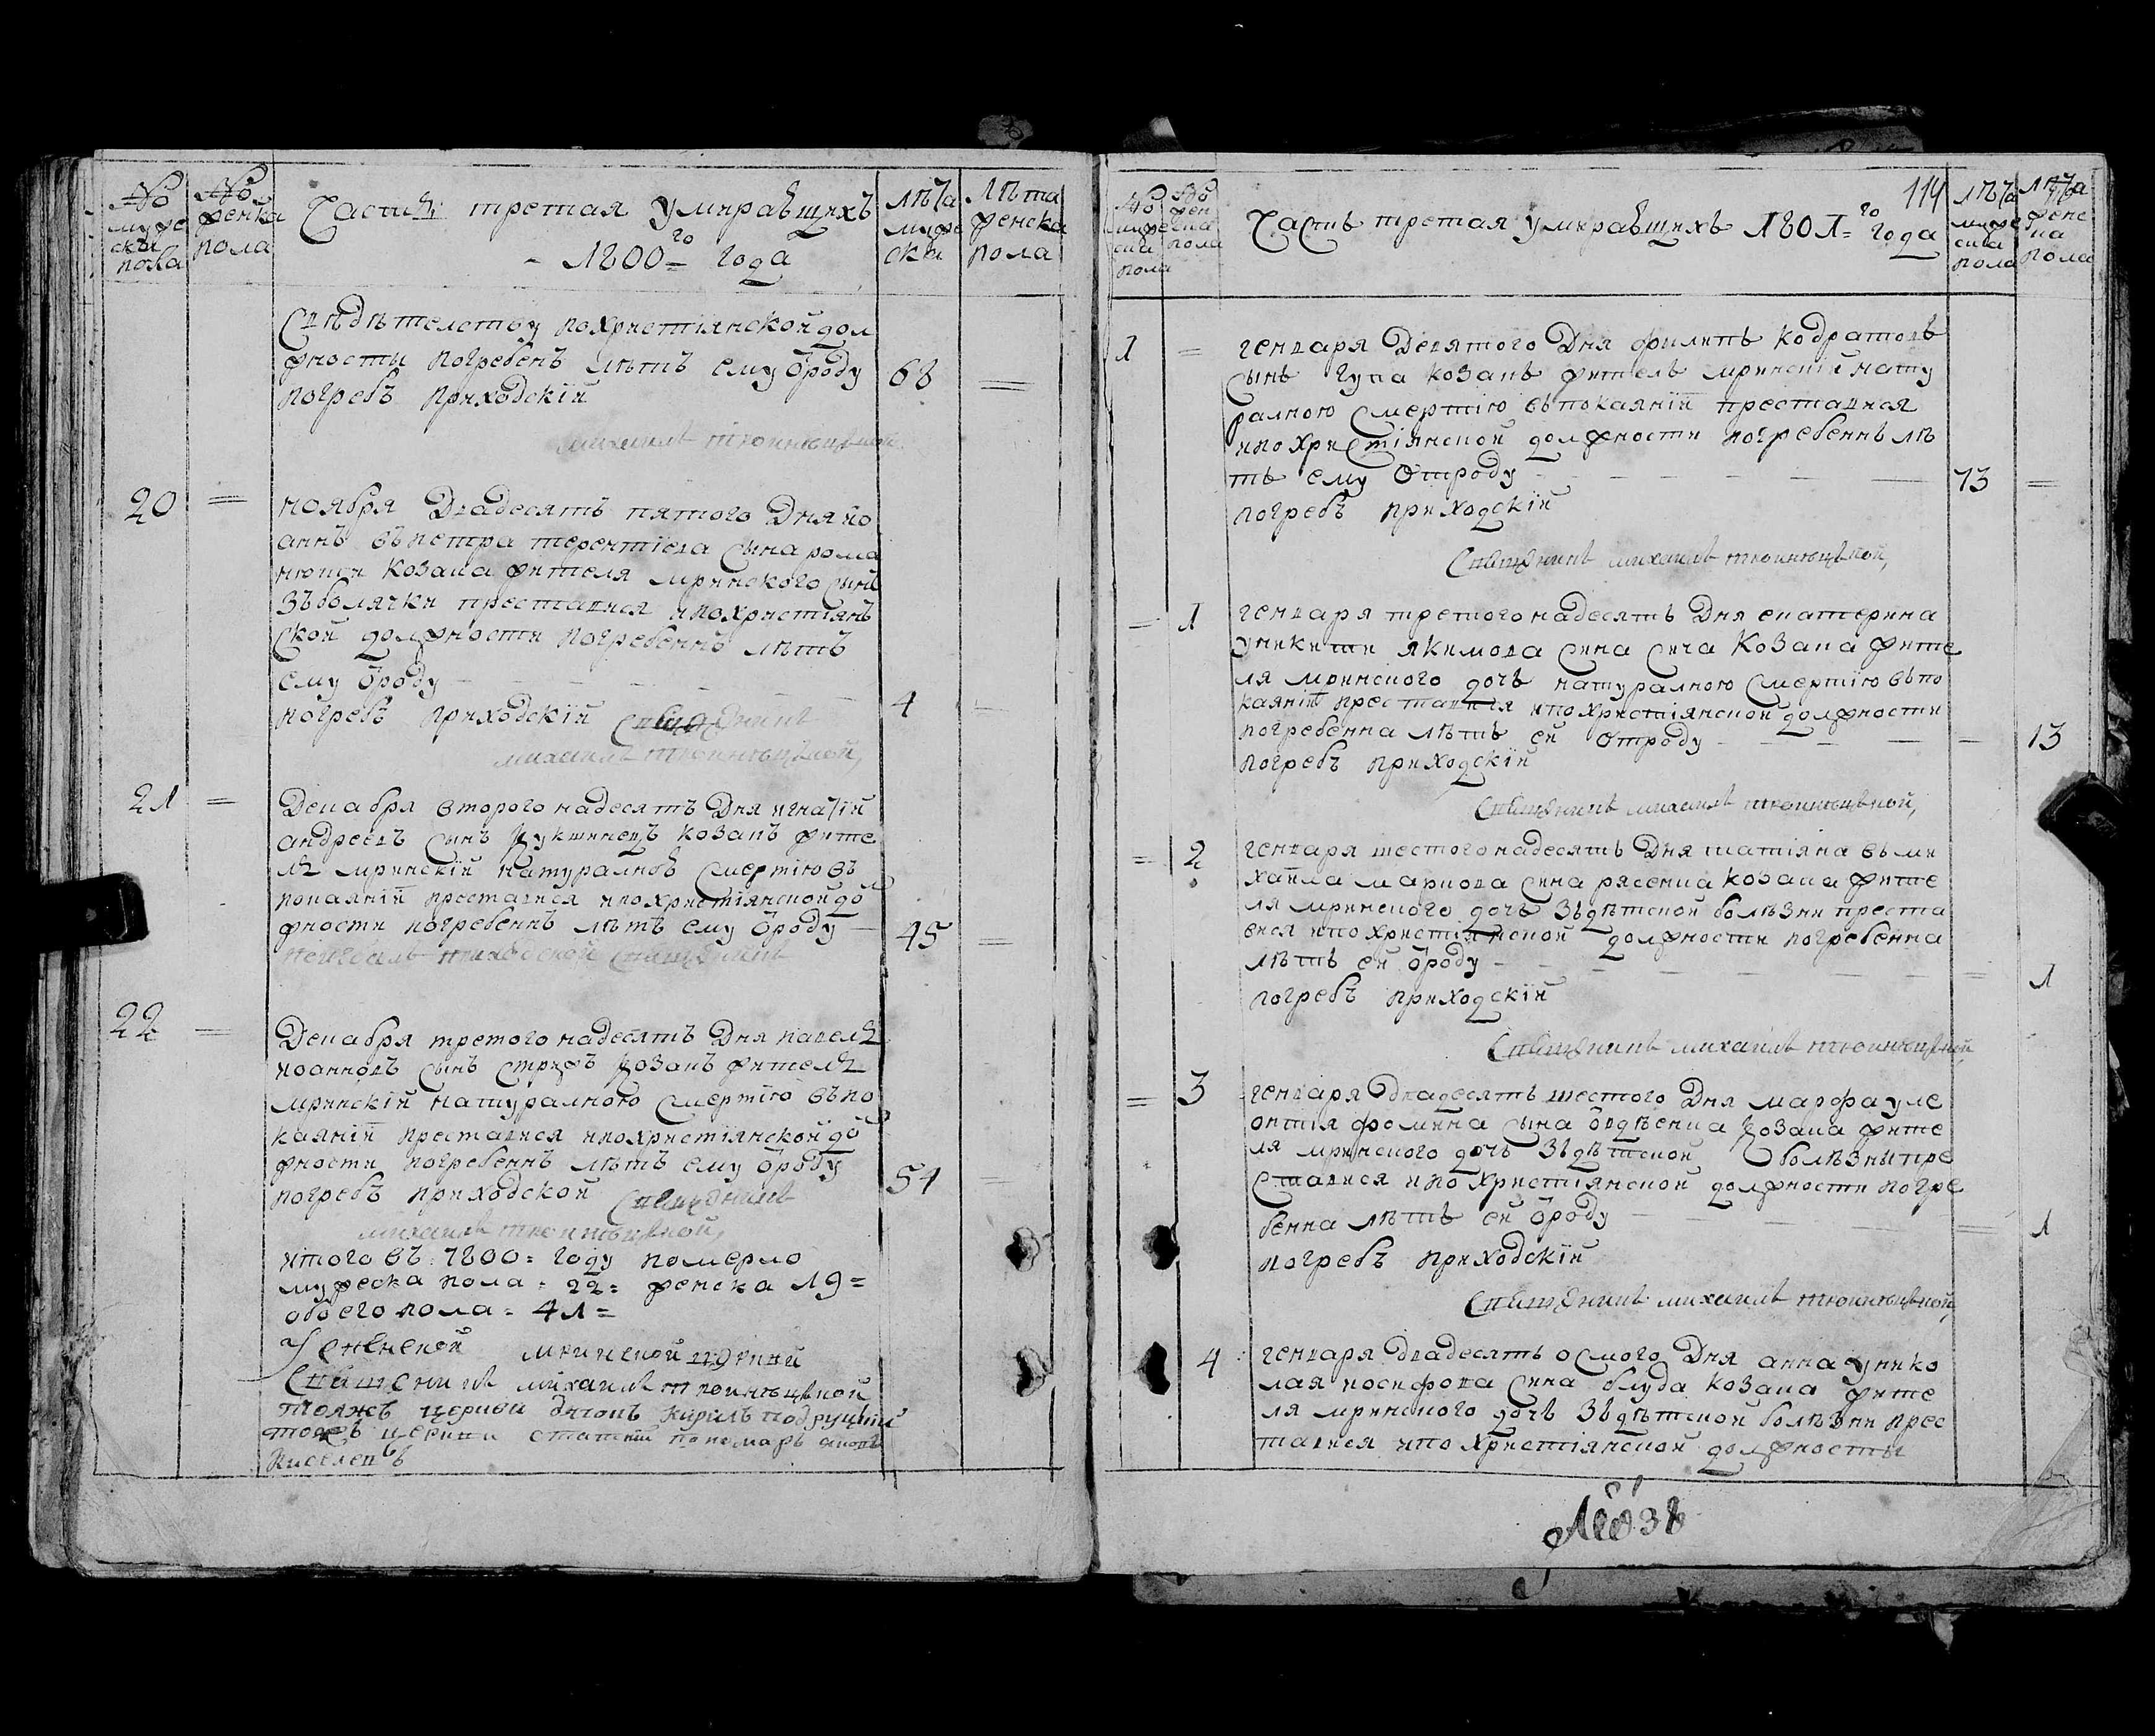 № мужеска пола
№ женска пола
Часть третая умиравшихъ
1800го года
лѣта мужеска
лѣта женска пола
свѣдѣтелству похристіянской дол
жносты погребенъ лѣтъ ему ѿроду 68
погребъ приходскій
михаилъ
20 = ноября двадесятъ пятого дня йо
аннъ въ петра терентіева сына рома
нюши козака жителя мринского сынъ
зъ болячки преставися и похристіян
ской должности погребеннъ лѣтъ
ему ѿроду 4
погребъ приходскій священникъ
михаилъ
21 = декабря второго надесятъ дня игнатій
андреевъ сынъ кукшинецъ козакъ жите
ль мринскій натуралною смертію въ
покаяній преставися и похристіянской до
жности погребеннъ лѣтъ ему ѿроду 45
погребалъ приходской священникъ
22 = декабря третого надесятъ дня павелъ
иоанновъ сынъ козакъ житель
мринскій натуралного смертію въ по
каяній преставися и похристіянской до
жности погребеннъ лѣтъ ему ѿроду
погребъ приходской священникъ 54
михаилъ
итого въ 1800 = году померло
мужеска пола = 22 = женска 19 =
обоего пола = 41 =
мринской церкви
священникъ михаилъ
тояжъ церкви дяконъ кирилъ
тояжъ церкви пономарь
киселевъ
114
№ мужеска пола
№ женска пола
Часть третая умиравшихъ 1801го года
лѣта мужеска пола
лѣта женска пола
1 = генваря девятого дня филипъ кодратовъ
сынъ гупа козакъ житель мринскій нату
ралною смертію въ покаяній преставися
и по христіянской должности погребеннъ лѣ
тъ ему ѿтроду 73 =
погребъ приходскій
священникъ михаилъ
= 1 генваря третого надесятъ дня екатерина
у никити якимова сина сича козака жите
ля мринского дочъ натуралною смертію въ по
каяній преставися и по христіянской должности
погребенна лѣтъ ей ѿтроду 13
погребъ приходскій
священникъ михаилъ
= 2 генваря шестого надесятъ дня татіяна въ ми
хаила маркова сина рясенца козака жите
ля мринского дочъ зъ дѣтской болѣзни преста
вися и по христіянской должности погребенна
лѣтъ ей ѿроду 1
погребъ приходскій
священникъ михаилъ
= 3 генваря двадесятъ шестого дня марфа у ле
онтія фомина сына козака жите
ля мринского дочъ зъ дѣтской болѣзны пре
ставися и по христіянской должности погре
бенна лѣтъ ей ѿроду 1
погребъ приходскій
священникъ михаилъ
4 генваря двадесятъ осмого дня анна у нико
лая иосифова сина блуда козака жите
ля мринского дочъ зъ дѣтской болѣзни прес
тавися и по христіянской должносты